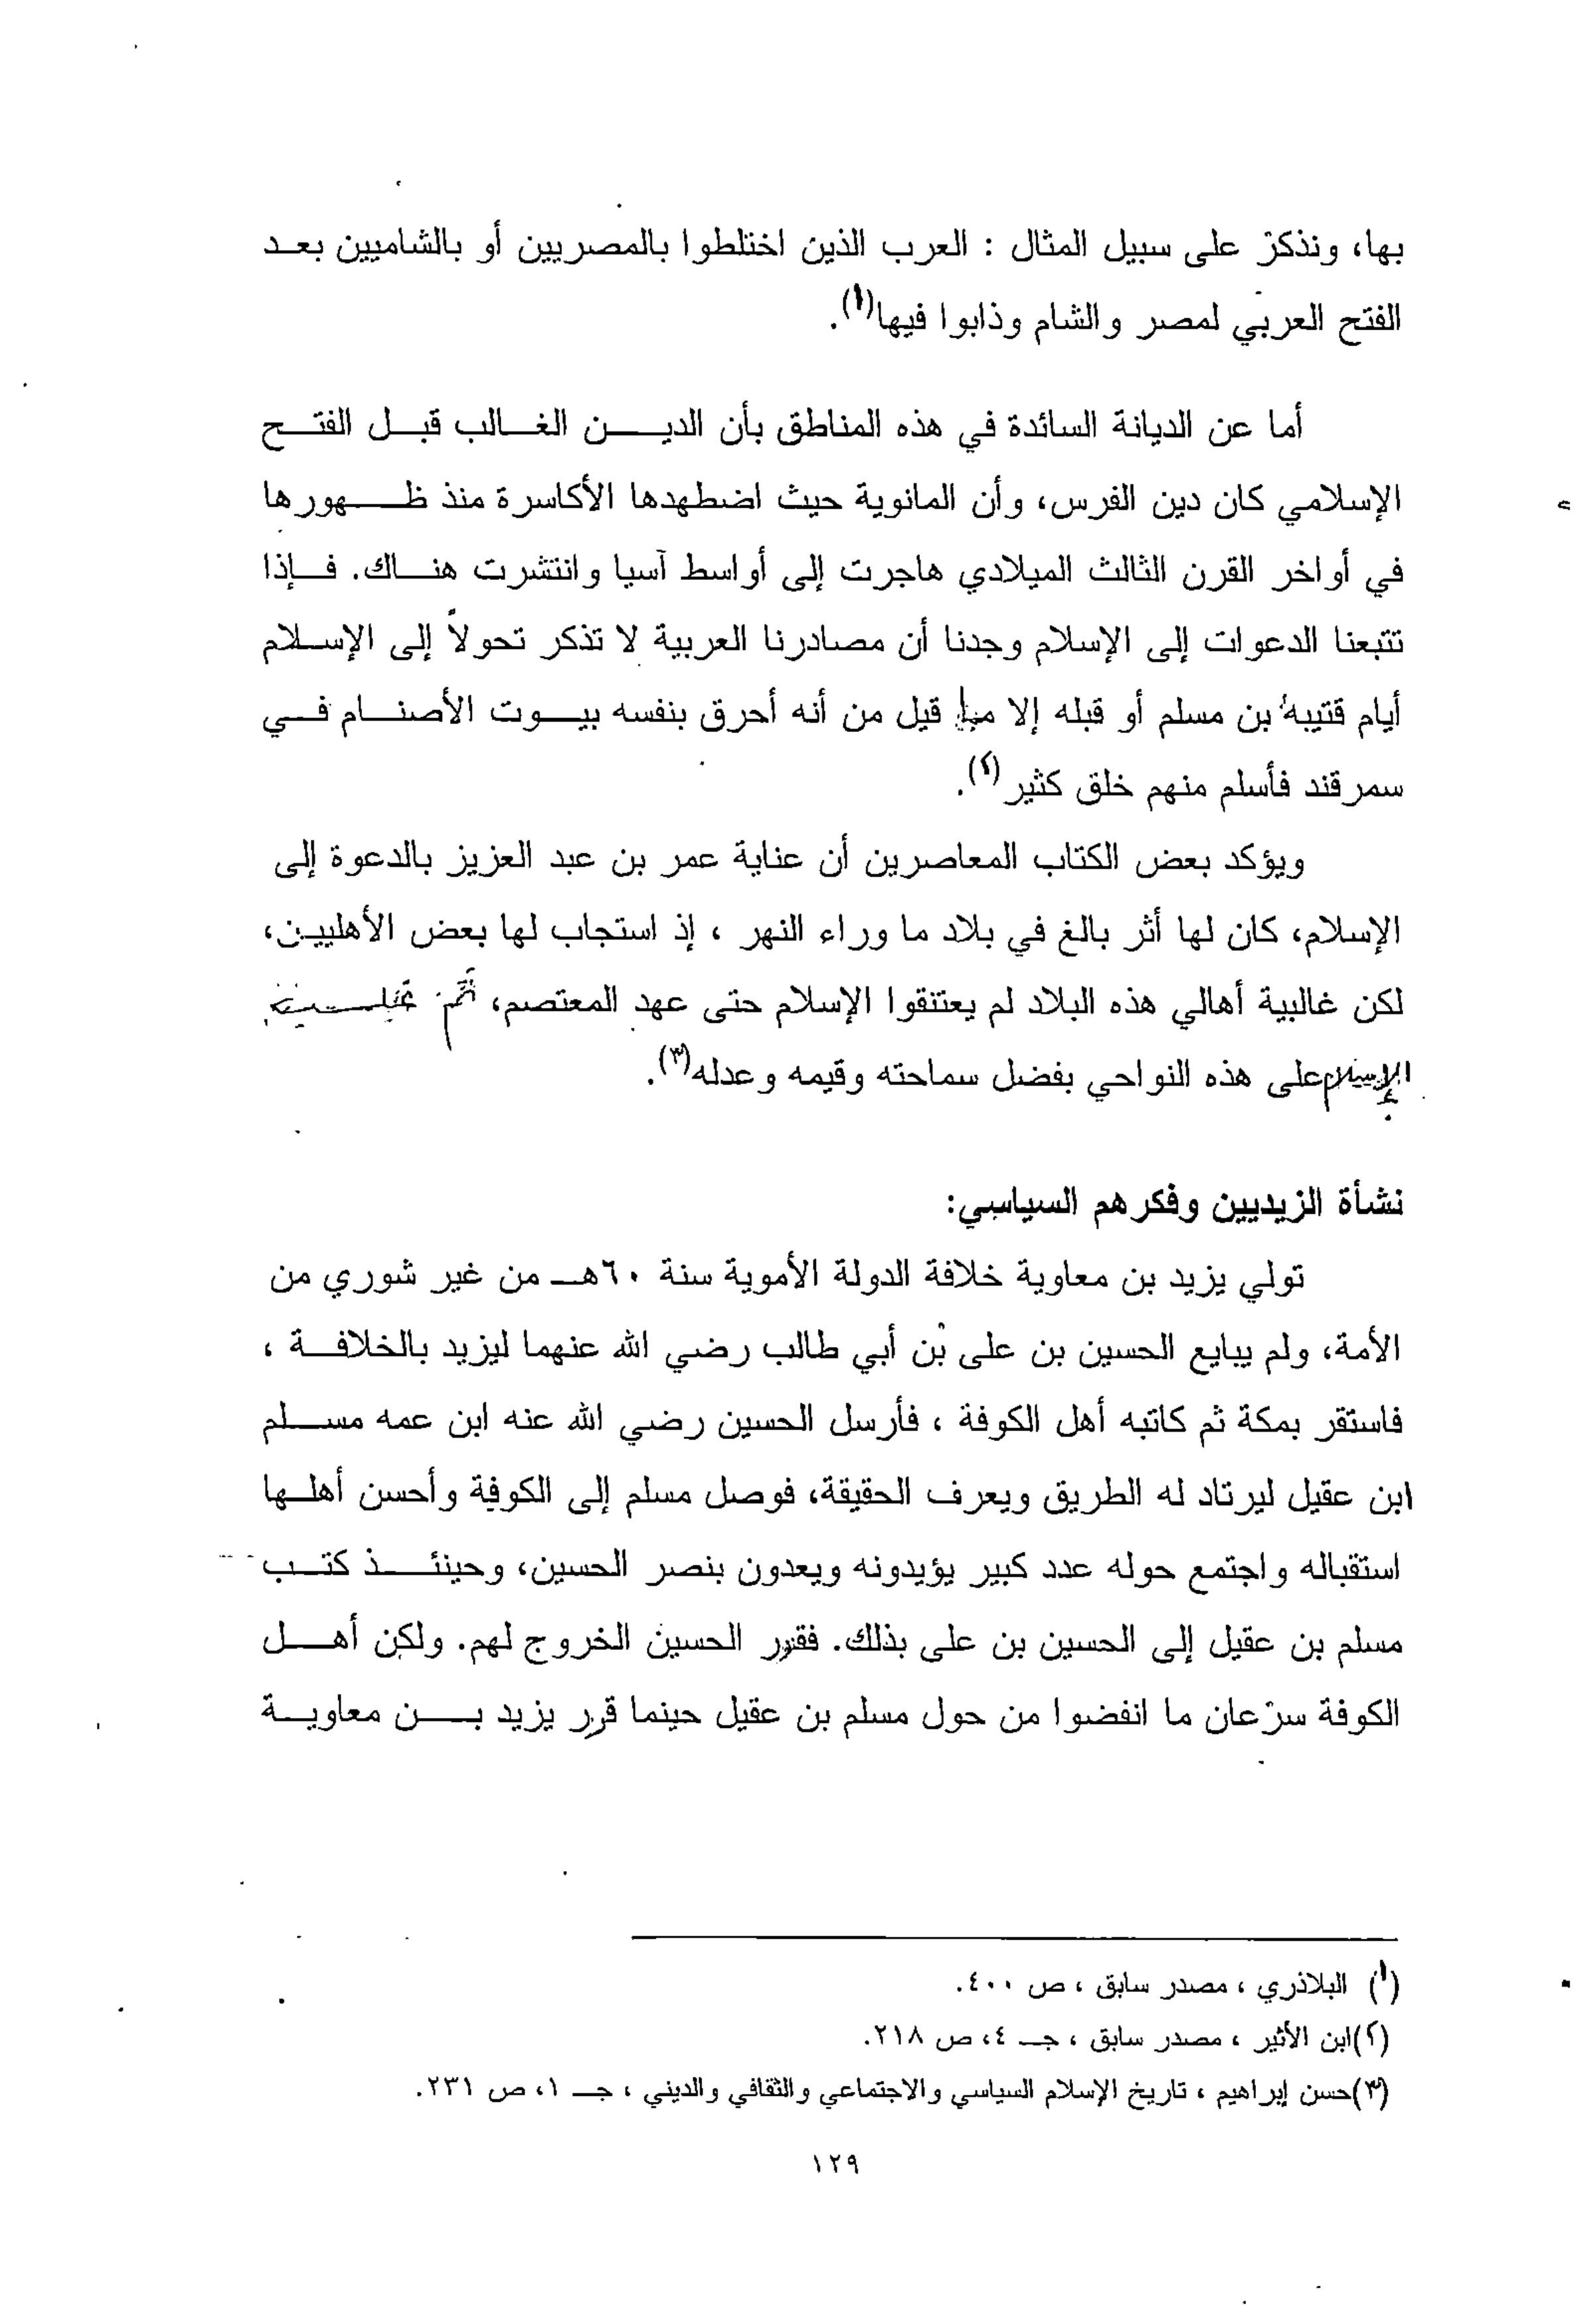 بها، ونذكر على سبيل المثال : العرب الذين اختلطوا بالمصريين أو بالشاميين بعد
الفتح العربي لمصر والشام وذابوا فيها(١).
أما عن الديانة السائدة في هذه المناطق بأن الدين الغالب قبل الفتح
الإسلامي كان دين الفرس، وأن المانوية حيث اضطهدها الأكاسرة منذ ظهورها
في أواخر القرن الثالث الميلادي هاجرت إلى أواسط آسيا وانتشرت هناك. فإذا
تتبعنا الدعوات إلى الإسلام وجدنا أن مصادرنا العربية لا تذكر تحولاً إلى الإسلام
أيام قتيبه بن مسلم أو قبله إلا ما قيل من أنه أحرق بنفسه بيوت الأصنام في
سمرقند فأسلم منهم خلق كثير(٢).
ويؤكد بعض الكتاب المعاصرين أن عناية عمر بن عبد العزيز بالدعوة إلى
الإسلام، كان لها أثر بالغ في بلاد ما وراء النهر ، إذ استجاب لها بعض الأهليين،
لكن غالبية أهالي هذه البلاد لم يعتنقوا الإسلام حتى عهد المعتصم، ثم
الإسلام على هذه النواحي بفضل سماحته وقيمه وعدله(٣).
نشأة الزيديين وفكرهم السياسي:
تولي يزيد بن معاوية خلافة الدولة الأموية سنة ٦٠هـ من غير شوري من
الأمة، ولم يبايع الحسين بن على بن أبي طالب رضي الله عنهما ليزيد بالخلافة ،
فاستقر بمكة ثم كاتبه أهل الكوفة ، فأرسل الحسين رضي الله عنه ابن عمه مسلم
ابن عقيل ليرتاد له الطريق ويعرف الحقيقة، فوصل مسلم إلى الكوفة وأحسن أهلها
استقباله واجتمع حوله عدد كبير يؤيدونه ويعدون بنصر الحسين، وحينئذ كتب
مسلم بن عقيل إلى الحسين بن على بذلك. فقرر الحسين الخروج لهم. ولكن أهل
الكوفة سرعان ما انفضوا من حول مسلم بن عقيل حينما قرر يزيد بن معاوية
(١) البلاذري ، مصدر سابق ، ص ٤٠٠.
(٢)ابن الأثير ، مصدر سابق ، جـ ٤، ص ٢١٨.
(٣)حسن إبراهيم ، تاريخ الإسلام السياسي والاجتماعي والثقافي والديني ، جـ ١، ص ٢٣١.
١٢٩